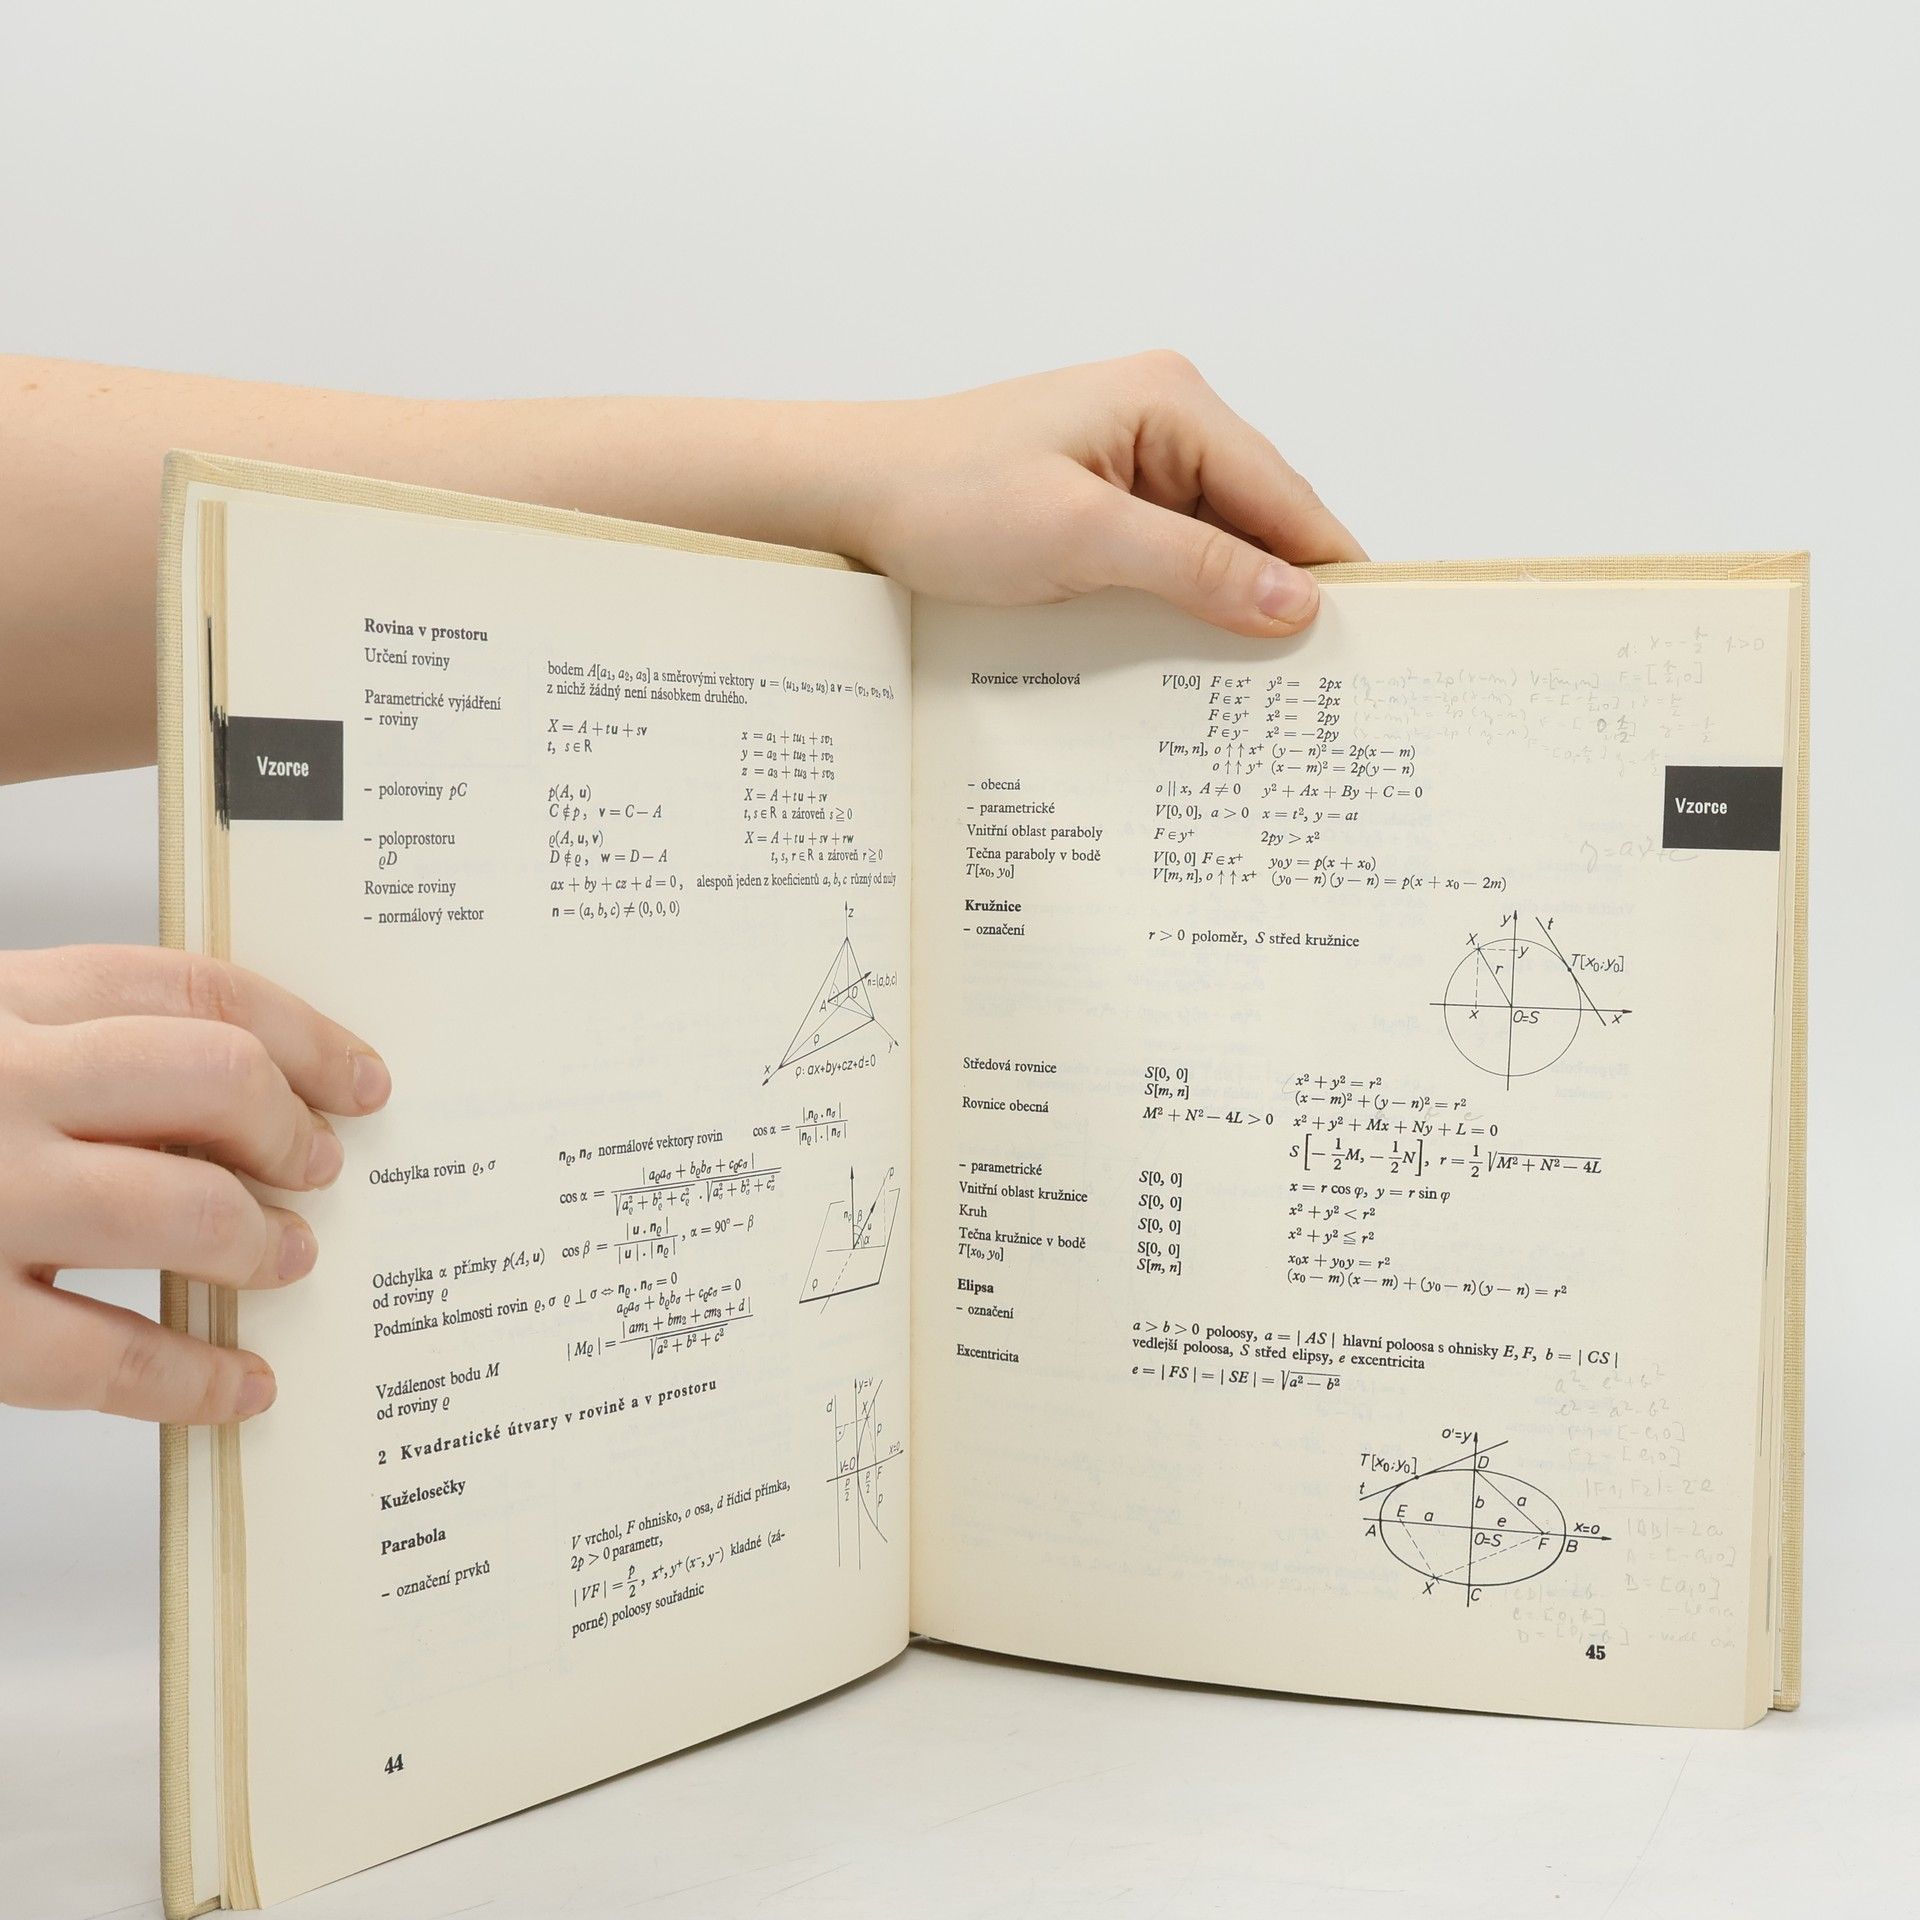 Rovina v prostoru
Určení roviny
bodem A[a₁, a₂, a₃] a směrovými vektory u = (u₁, u₂, u₃) a v = (v₁, v₂, v₃),
z nichž žádný není násobkem druhého.
Parametrické vyjádření
– roviny
X = A + tu + sv
t, s ∈ R
x = a₁ + tu₁ + sv₁
y = a₂ + tu₂ + sv₂
z = a₃ + tu₃ + sv₃
Vzorce
– poloroviny pC
p(A, u)
C ∉ p, v = C − A
X = A + tu + sv
t, s ∈ R a zároveň s ≧ 0
– poloprostoru
ϱD
ϱ(A, u, v)
D ∉ ϱ, w = D − A
X = A + tu + sv + rw
t, s, r ∈ R a zároveň r ≧ 0
Rovnice roviny ax + by + cz + d = 0, alespoň jeden z koeficientů a, b, c různý od nuly
– normálový vektor n = (a, b, c) ≠ (0, 0, 0)
z
n=(a,b,c)
A
O
ϱ
x
y
ϱ: ax+by+cz+d=0
Odchylka rovin ϱ, σ
nϱ, nσ normálové vektory rovin cos α = |nϱ . nσ| / |nϱ| . |nσ|
cos α = |aϱaσ + bϱbσ + cϱcσ| / √(aϱ² + bϱ² + cϱ²) . √(aσ² + bσ² + cσ²)
Odchylka α přímky p(A, u)
od roviny ϱ
cos β = |u . nϱ| / |u| . |nϱ|, α = 90° − β
p
nϱ
β
u
α
ϱ
Podmínka kolmosti rovin ϱ, σ ϱ ⊥ σ ⇔ nϱ . nσ = 0
aϱaσ + bϱbσ + cϱcσ = 0
Vzdálenost bodu M
od roviny ϱ
|Mϱ| = |am₁ + bm₂ + cm₃ + d| / √(a² + b² + c²)
2 Kvadratické útvary v rovině a v prostoru
Kuželosečky
Parabola
– označení prvků
V vrchol, F ohnisko, o osa, d řídicí přímka,
2p > 0 parametr,
|VF| = p/2, x⁺, y⁺ (x⁻, y⁻) kladné (zá-
porné) poloosy souřadnic
d
y=v
X
p
x=o
V=O
F
p/2
p/2
p
44
Rovnice vrcholová V[0,0] F ∈ x⁺ y² = 2px
F ∈ x⁻ y² = −2px
F ∈ y⁺ x² = 2py
F ∈ y⁻ x² = −2py
V[m, n], o ↑↑ x⁺ (y − n)² = 2p(x − m)
o ↑↑ y⁺ (x − m)² = 2p(y − n)
– obecná o || x, A ≠ 0 y² + Ax + By + C = 0
– parametrické V[0, 0], a > 0 x = t², y = at
Vnitřní oblast paraboly F ∈ y⁺ 2py > x²
Tečna paraboly v bodě V[0, 0] F ∈ x⁺ y₀y = p(x + x₀)
T[x₀, y₀] V[m, n], o ↑↑ x⁺ (y₀ − n)(y − n) = p(x + x₀ − 2m)
Vzorce
y=ax²+c
Kružnice
– označení r > 0 poloměr, S střed kružnice
y
t
X
y
T[x₀;y₀]
r
x
O=S
x
Středová rovnice S[0, 0] x² + y² = r²
S[m, n] (x − m)² + (y − n)² = r²
Rovnice obecná M² + N² − 4L > 0 x² + y² + Mx + Ny + L = 0
S[−1/2 M, −1/2 N], r = 1/2 √(M² + N² − 4L)
– parametrické S[0, 0] x = r cos φ, y = r sin φ
Vnitřní oblast kružnice S[0, 0] x² + y² < r²
Kruh S[0, 0] x² + y² ≦ r²
Tečna kružnice v bodě S[0, 0] x₀x + y₀y = r²
T[x₀, y₀] S[m, n] (x₀ − m)(x − m) + (y₀ − n)(y − n) = r²
Elipsa
– označení a > b > 0 poloosy, a = |AS| hlavní poloosa s ohnisky E, F, b = |CS|
vedlejší poloosa, S střed elipsy, e excentricita
Excentricita e = |FS| = |SE| = √(a² − b²)
a² = e²+b²
e² = a²-b²
F2 = [e,0]
|F1,F2|=2e
|AB|=2a
A = [-a,0]
B = [a,0]
o'=y
T[x₀;y₀]
D
t
b
a
E
a
e
x=o
A
O=S
F
B
X
C
45